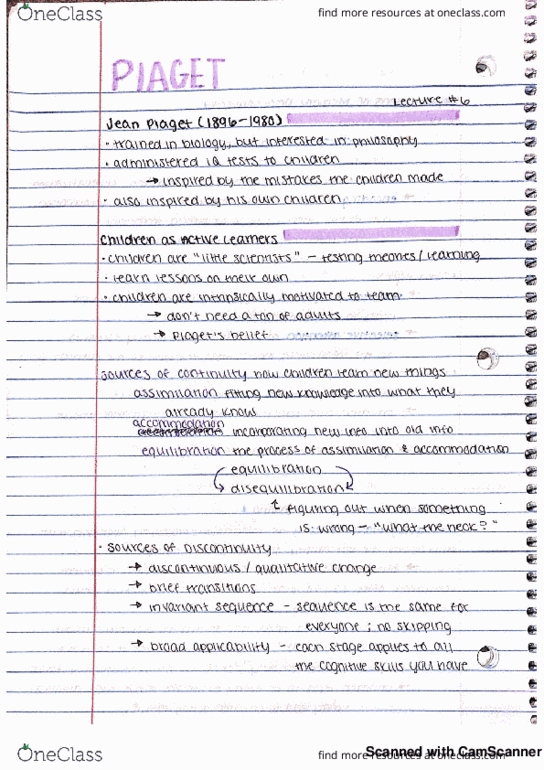 OneClass
find more resources at oneclass.com
PIAGET
Lecture #6
Jean Piaget (1896-1980)
• trained in biology, but interested in philosophy
• administered IQ tests to children
→ inspired by the mistakes the children made
• also inspired by his own children
Children as Active Learners
• children are "little scientists" - testing theories / learning
• learn lessons on their own
• children are intrinsically motivated to learn
→ don't need a ton of adults
→ Piaget's belief
sources of continuity how children learn new things
assimilation fitting new knowledge into what they
already know
accommodation
incorporating new info into old info
equilibration the process of assimilation & accommodation
equilibration
disequilibration
↑ figuring out when something
is wrong - "what the heck?"
• sources of Discontinuity
→ discontinuous / qualitative change
→ brief transitions
→ invariant sequence - sequence is the same for
everyone ; no skipping
→ broad applicability - each stage applies to all
the cognitive skills you have
OneClass
find more resources at oneclass.com
Scanned with CamScanner